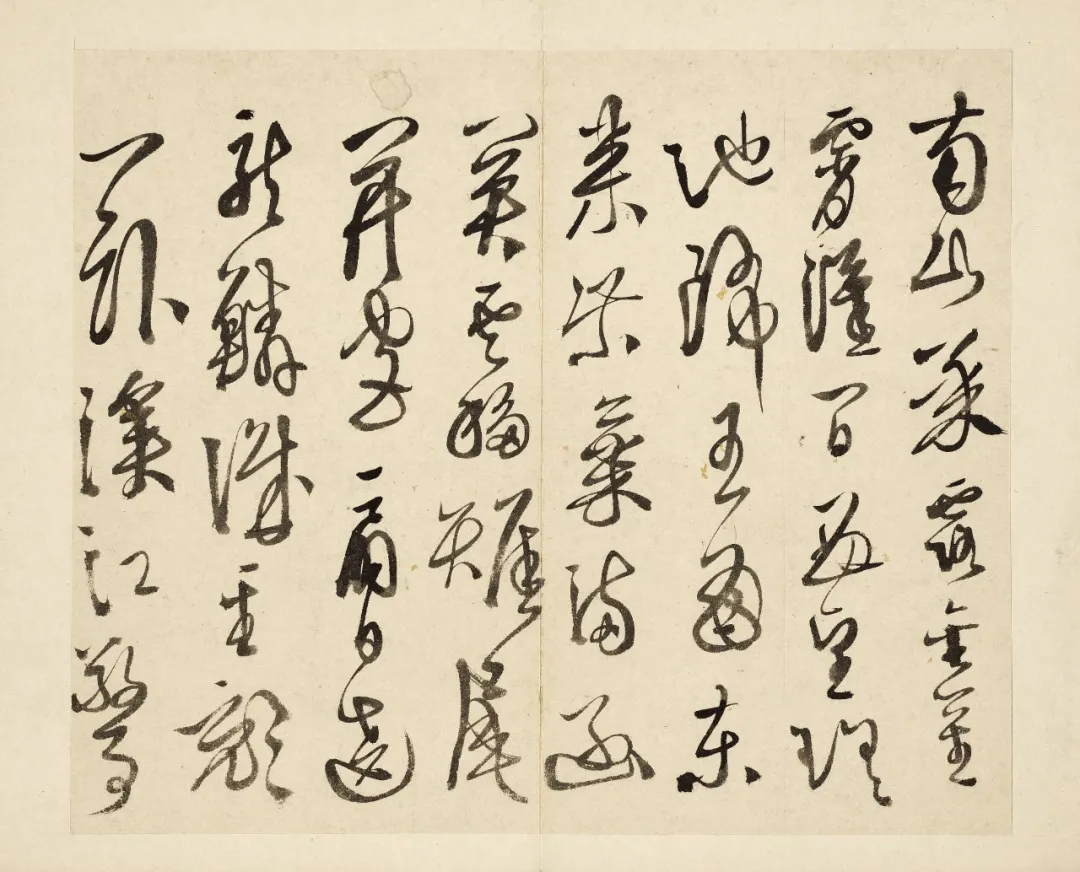 南山承露金莖
霄漢間西望瑤
池降王母東
來紫氣滿函
關雲移雉尾
開宮扇日繞
龍鱗識聖顏
一臥滄江驚